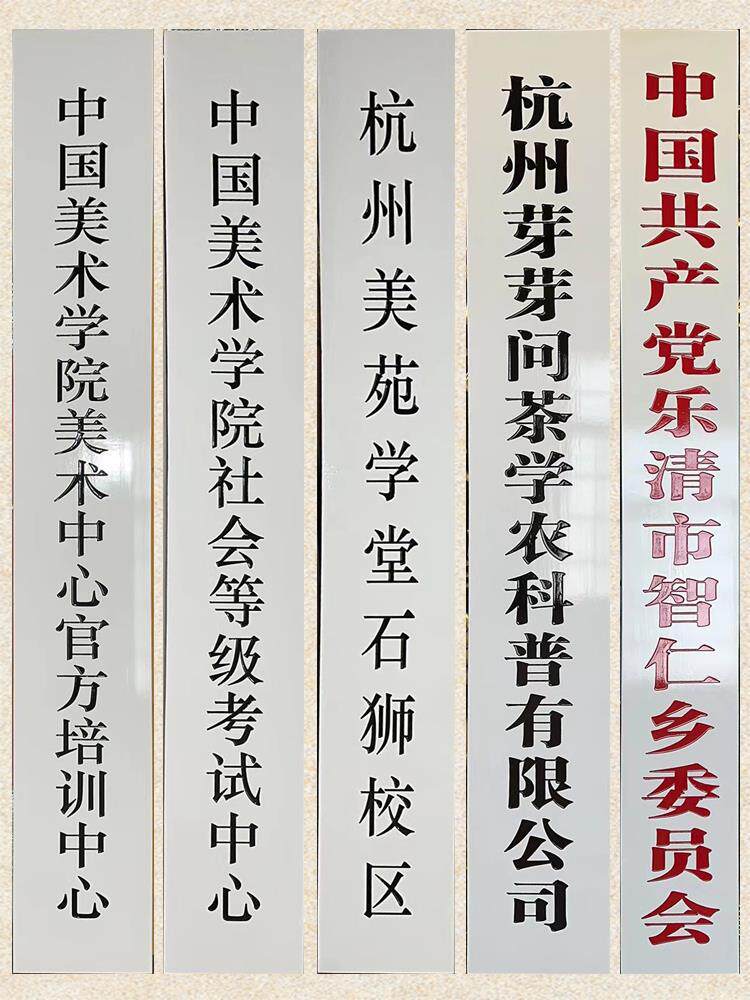 中国美术学院美术中心官方培训中心
中国美术学院社会等级考试中心
杭州美苑学堂石狮校区
杭州芽芽问茶学农科普有限公司
中国共产党乐清市智仁乡委员会